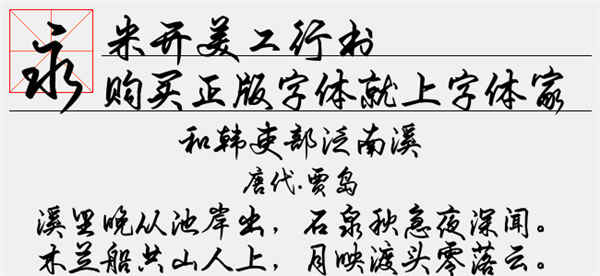 永
米开美工行书
购买正版字体就上字体家
和韩吏部泛南溪
唐代·贾岛
溪里晚从池岸出，石泉秋急夜深闻。
木兰船共山人上，月映渡头零落云。